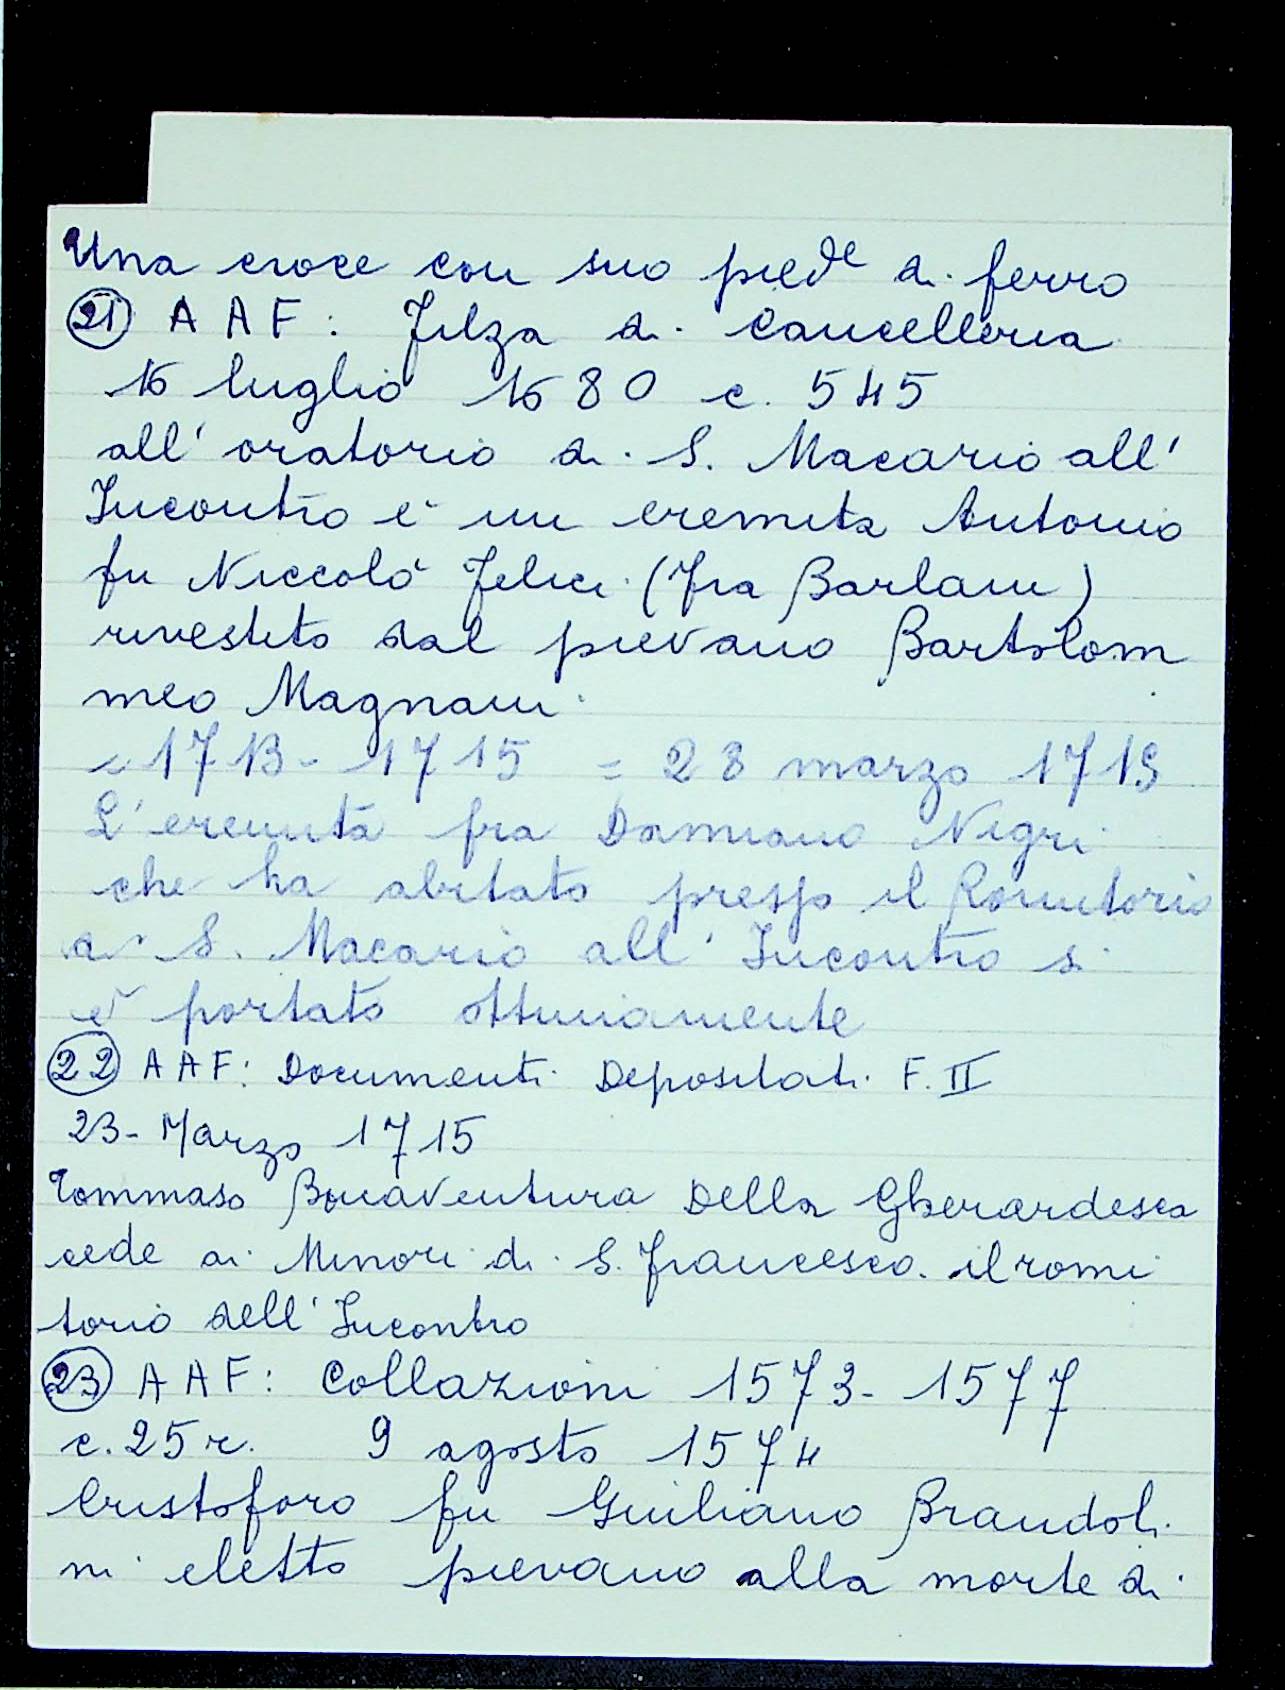 Una croce con suo piede di ferro
21 AAF: Filza di Cancelleria
16 luglio 1680 c. 545
all'oratorio di S. Macario all'
Incontro è un eremita Antonio
fu Niccolò Felici (Fra Barlam)
rivestito dal pievano Bartolom
meo Magnani
1713-1715 = 28 marzo 1715
L'eremita fra Damiano Negri
che ha abitato presso il Romitorio
di S. Macario all'Incontro si
è portato ottimamente
22 AAF: Documenti Depositati F. II
23-Marzo 1715
Tommaso Bonaventura Della Gherardesca
cede ai Minori di S. Francesco il romi
torio dell'Incontro
23 AAF: Collazioni 1573-1577
c. 25 r. 9 agosto 1574
Cristoforo fu Giuliano Brandoli
ni eletto pievano alla morte di